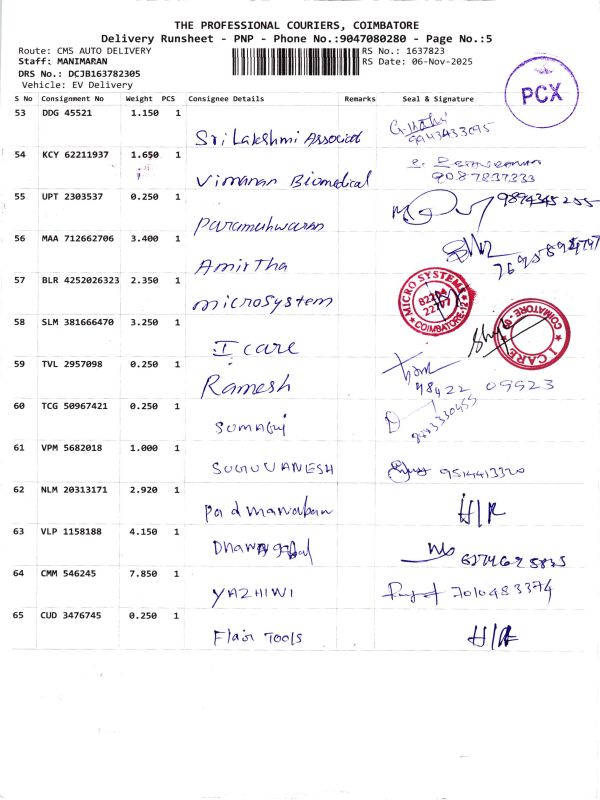 THE PROFESSIONAL COURIERS, COIMBATORE
Delivery Runsheet - PNP - Phone No.:9047080280 - Page No.:5
Route: CMS AUTO DELIVERY
RS No.: 1637823
Staff: MANIMARAN
RS Date: 06-Nov-2025
DRS No.: DCJB163782305
Vehicle: EV Delivery
PCX
S No Consignment No Weight PCS Consignee Details Remarks Seal & Signature
53 DDG 45521 1.150 1
Sri Lakshmi Associat 9943433095
54 KCY 62211937 1.650 1
Vimanan Biomedical 9087837333
55 UPT 2303537 0.250 1
Parameshwaran 9894345255
56 MAA 712662706 3.400 1
Amirtha
57 BLR 4252026323 2.350 1
microsystem MICRO SYSTEMS COIMBATORE-12
58 SLM 381666470 3.250 1
I care I CARE COIMBATORE
59 TVL 2957098 0.250 1
Ramesh 98422 09523
60 TCG 50967421 0.250 1
61 VPM 5682018 1.000 1
SUGUVANESH 9514413320
62 NLM 20313171 2.920 1
Padmanaban H/R
63 VLP 1158188 4.150 1
64 CMM 546245 7.850 1
YAZHIWI 7010483374
65 CUD 3476745 0.250 1
Flair Tools H/R